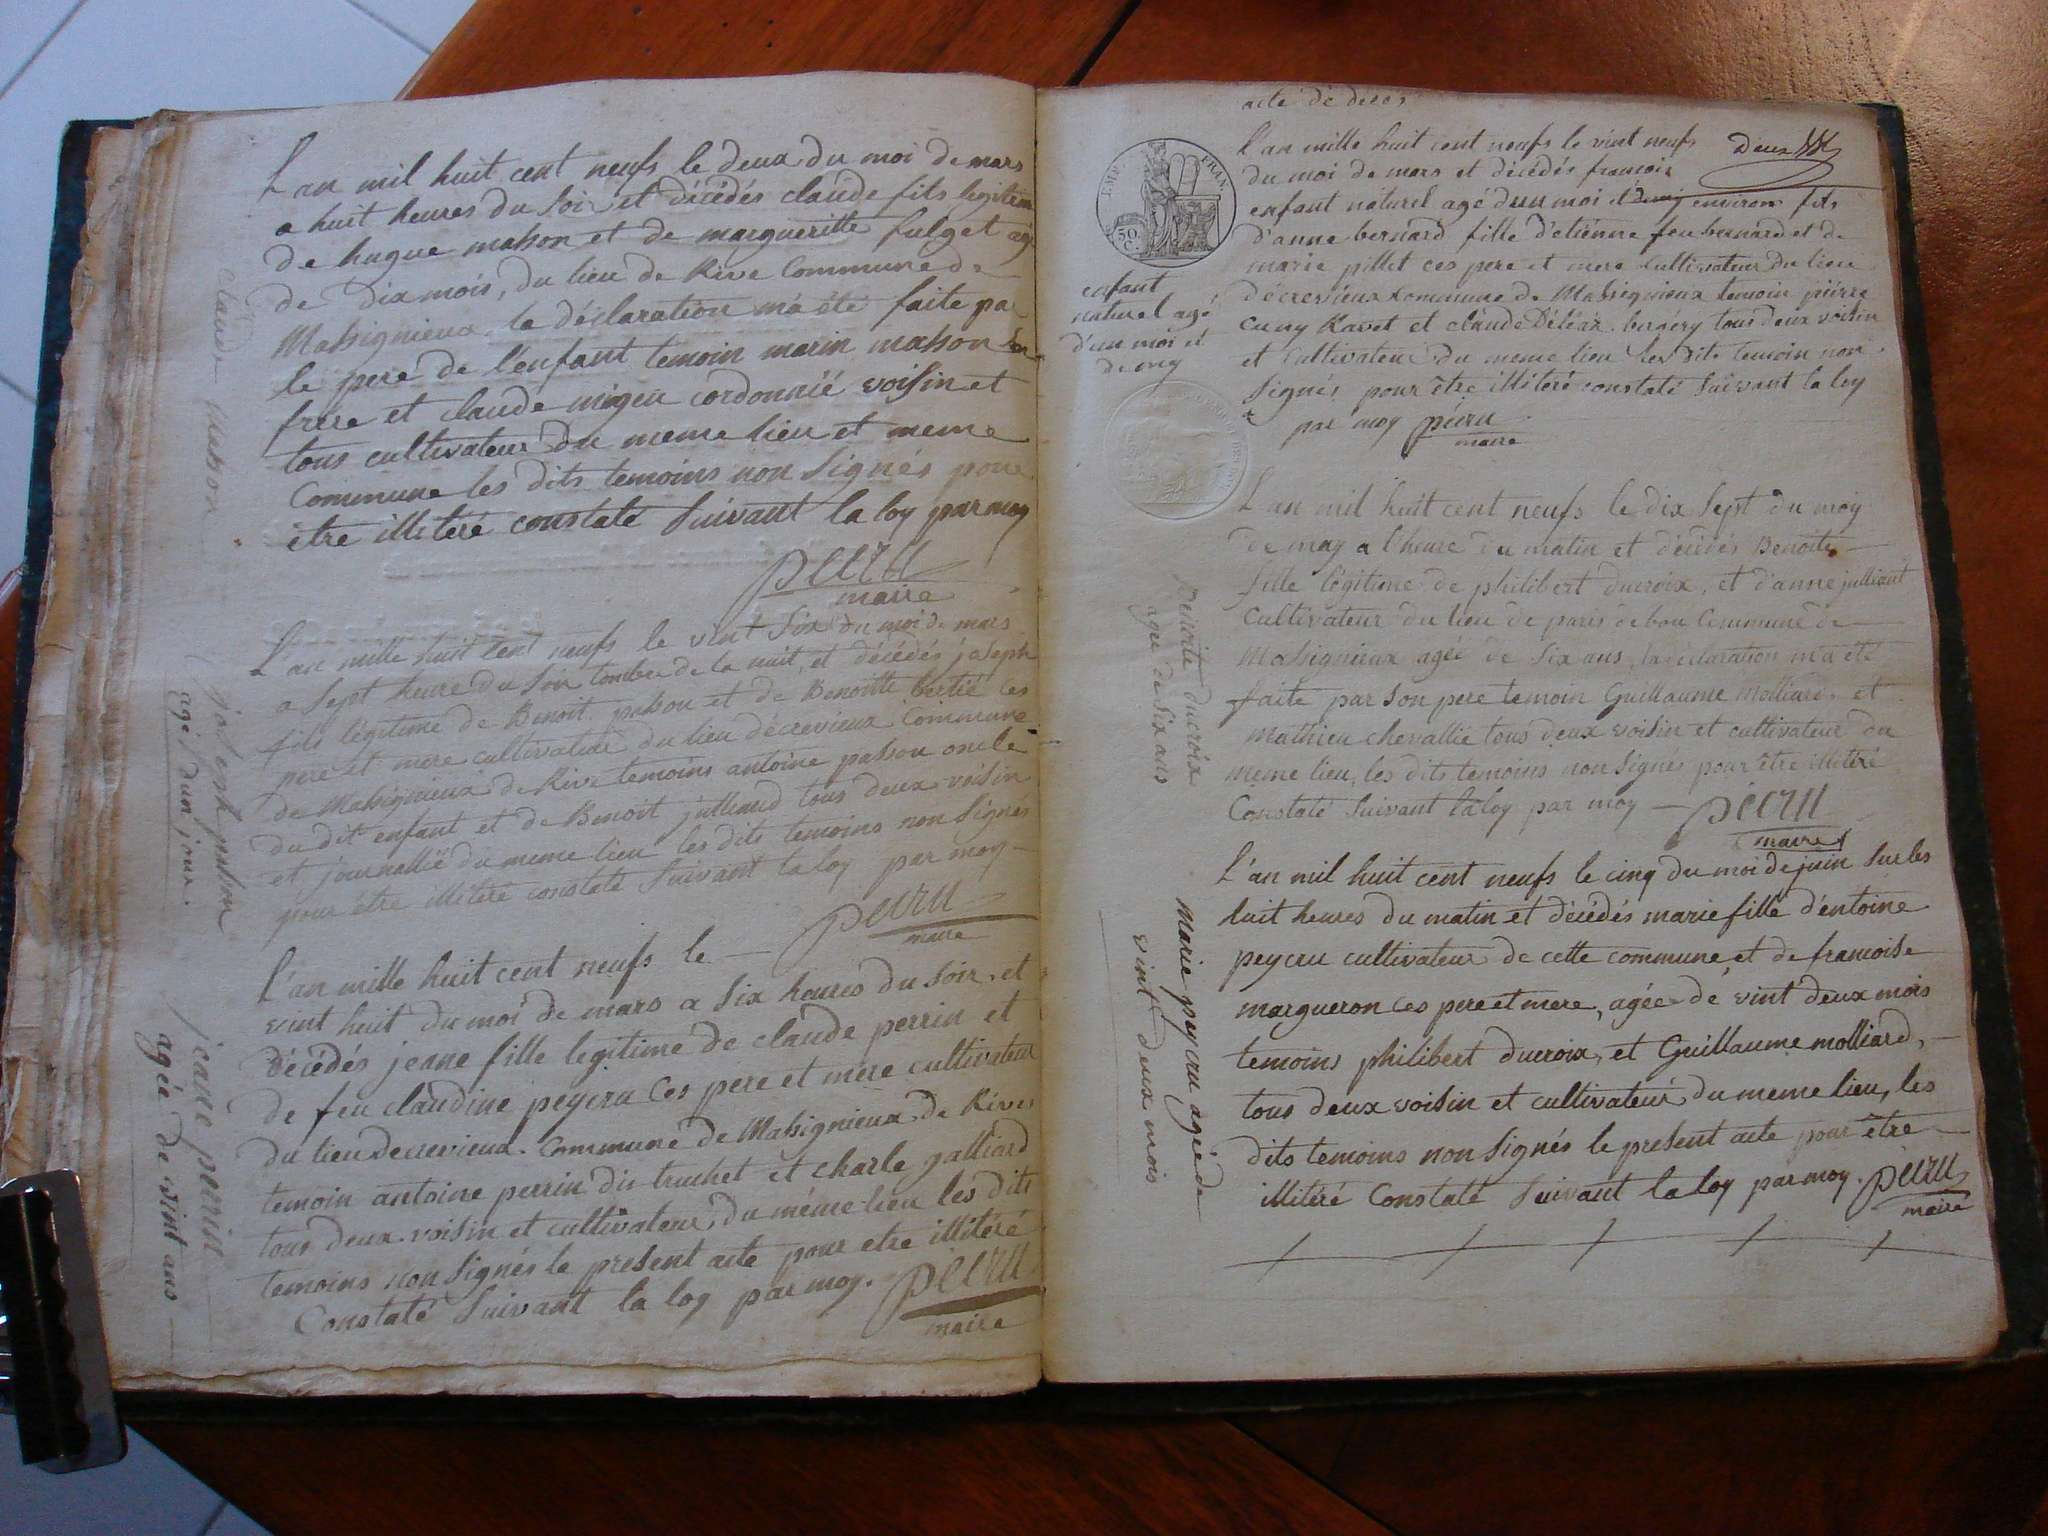 L'an mil huit cent neufs le deux du moi de mars
a huit heures du soir et décédés claude fils legitime
de hugue masson et de margueritte fulget agé
de dix mois, du lieu de Rive Commune de
Massignieux la déclaration m'a été faite par
le pere de l'enfant temoin marin masson son
frere et claude migeu cordonnié voisin et
tous cultivateur du meme lieu et meme
Commune les dits temoins non Signés pour
etre illiteré constaté Suivant la loy par moy
peuru
maire
claude masson
L'an mille huit cent neufs le vint Six du moi de mars
a Sept heure du Soir tombée de la nuit, et décédés joseph
fils légitime de Benoit passon et de Benoitte bertié ces
pere et mere cultivateur du lieu décrevieux Commune
de Massignieux de Rive temoins antoine passon oncle
du dit enfant et de Benoit julliard tous deux voisin
et journallié du meme lieu les dits temoins non Signés
pour être illiteré constaté Suivant la loy par moy
peuru
maire
joseph passon
agé d'un jour
L'an mille huit cent neufs le
vint huit du moi de mars a Six heures du Soir, et
décédés jeane fille legitime de claude perrin et
de feu claudine peycru Ces pere et mere cultivateur
du lieu decrevieux. Commune de Massignieux de Rives
temoin antoine perrin dit truchet et charle galliard
tous deux voisin et cultivateur du même lieu les dits
temoins non Signés le present acte pour etre illitéré
Constaté Suivant la loy par moy. peuru
maire
jeane perrin
agée de vint ans
acte de deces
deux
EMP. FRAN.
50.
C.
L'an mille huit cent neufs le vint neufs
du moi de mars et décédés francois
enfant naturel agé d'un moi et demy environ fils
d'anne bernard fille d'etiènne feu bernard et de
marie pillet ces pere et mere cultivateur du lieu
décrevieux commune de Massignieux temoin piérre
cuny Ravet et claude Déléaz bergéry tous deux voisin
et cultivateur du meme lieu les dits temoin non
Signés pour être illiteré constaté Suivant la loy
par moy peuru
maire
enfant
naturel agé
d'un moi et
demy
L'an mil huit cent neufs le dix Sept du moy
de may a l'heure du matin et décédés Benoite
fille légitime de philibert ducroix, et d'anne julliant
Cultivateur du lieu de paris de bou Commune de
Massignieux agée de Six ans, la declaration m'a été
faite par Son pere temoin Guillaume Molliard, et
Mathieu chevallie tous deux voisin et cultivateur du
meme lieu, les dits temoins non Signés pour être illiteré
Constaté Suivant la loy par moy peuru
maire
Benoite ducroix
agée de Six ans
L'an mil huit cent neufs le cinq du moi de juin Sur les
huit heures du matin et décédés marie fille d'entoine
peycru cultivateur de cette commune et de francoise
margueron ces pere et mere, agée de vint deux mois
temoins philibert ducroix, et Guillaume molliard,
tous deux voisin et cultivateur du meme lieu, les
dits temoins non Signés le present acte pour être
illitéré Constaté Suivant la loy par moy. peuru
maire
Marie peycru agée de
vint deux mois